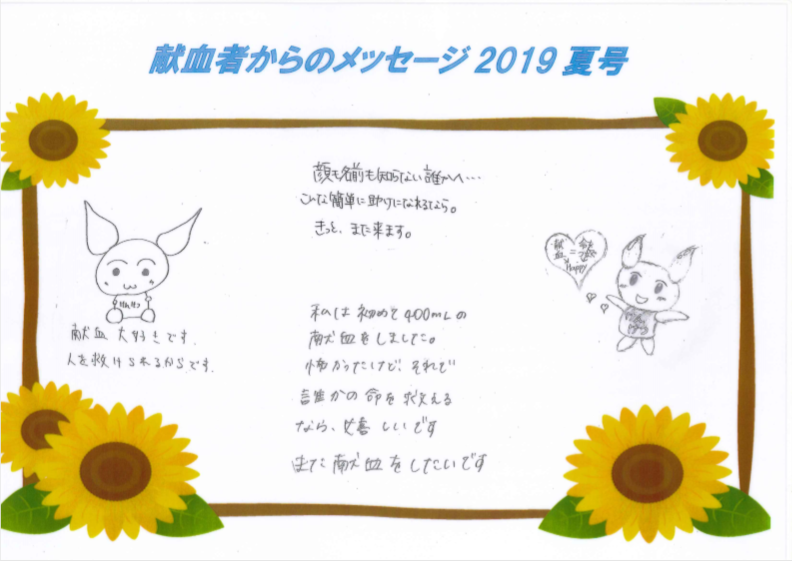 献血者からのメッセージ 2019 夏号
顔も名前も知らない誰かへ…
こんな簡単に助けになれるなら。
きっと、また来ます。
献血大好きです
人を救けられるからです.
献血
=
Happy
私は初めて400mLの
献血をしました。
怖かったけど、それで
誰かの命を救える
なら、嬉しいです
また献血をしたいです